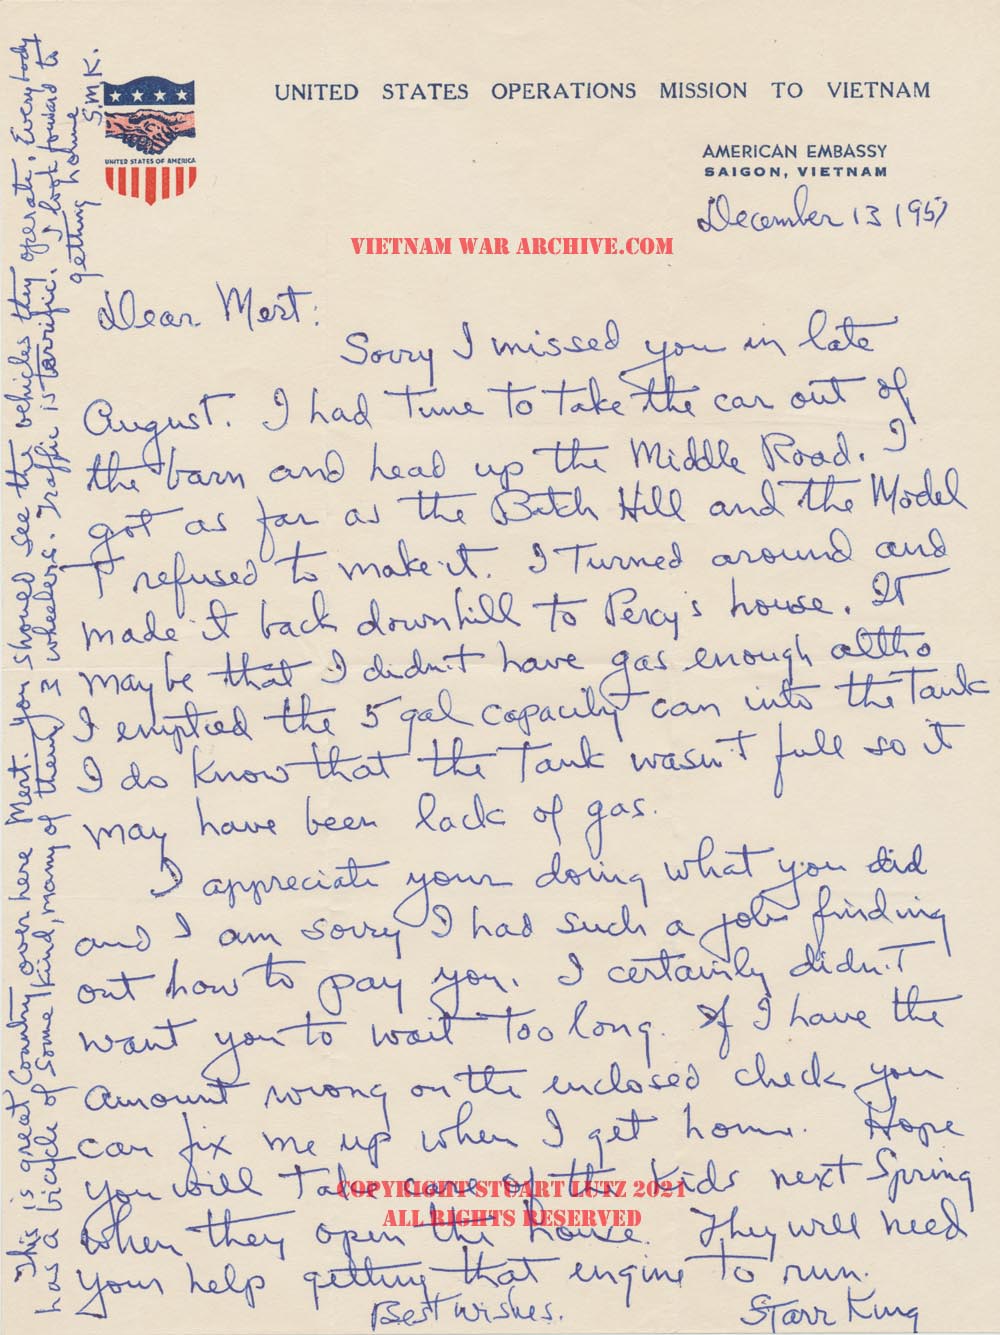 UNITED STATES OPERATIONS MISSION TO VIETNAM
UNITED STATES OF AMERICA
AMERICAN EMBASSY
SAIGON, VIETNAM
December 13 1957
VIETNAM WAR ARCHIVE.COM
Dear Mert:
Sorry I missed you in late
August. I had time to take the car out of
the barn and head up the Middle Road. I
got as far as the Hill and the Model
T refused to make it. I turned around and
made it back downhill to Percy's house. It
may be that I didn't have gas enough altho
I emptied the 5 gal capacity can into the tank
I do know that the tank wasn't full so it
may have been lack of gas.
I appreciate your doing what you did
and I am sorry I had such a job finding
out how to pay you. I certainly didn't
want you to wait too long. If I have the
amount wrong on the enclosed check you
can fix me up when I get home. Hope
you will take care of the kids next Spring
COPYRIGHT STUART LUTZ 2021
ALL RIGHTS RESERVED
when they open the house. They will need
your help getting that engine to run.
Best wishes.
Starr King
This is great Country over here Mert. You should see the vehicles they operate. Everybody
has a bicycle of some kind, many of them 3 wheelers. Traffic is terrific. I look forward to
getting home
S.M.K.